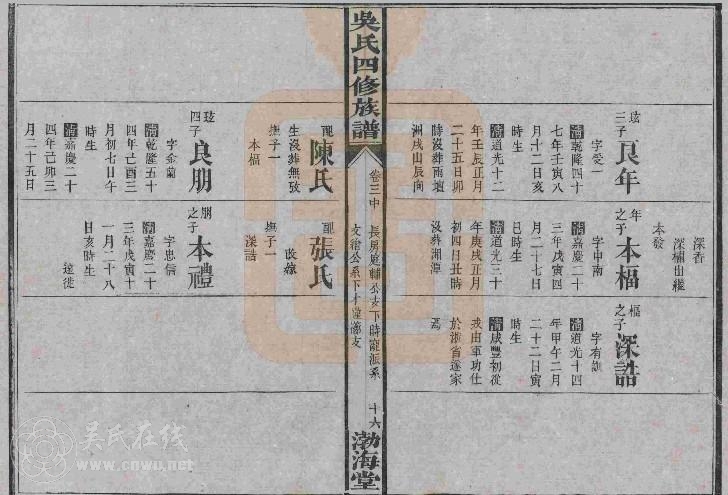 深香
深補出繼
本發
玹三子 良年
字愛一
清乾隆四十
七年壬寅八
月十二日亥
時生
清道光十二
年壬辰正月
二十五日卯
時沒葬雨壇
洲戌山辰向
年之子 本福
字申南
清嘉慶二十
三年戊寅四
月二十七日
巳時生
清道光三十
年庚戌正月
初四日丑時
沒葬湘潭
福之子 深誥
字有訓
清道光十四
年甲午二月
二十二日寅
時生
清咸豐初從
戎由軍功仕
於浙省遂家
焉
吳氏四修族譜
卷三中
長房庭輔公支下時寵派系
文 公系下才 支
十六
渤海堂
配陳氏
生沒葬無攷
撫子一
本福
玹四子 良朋
字金蘭
清乾隆五十
四年己酉三
月初七日午
時生
清嘉慶二十
四年己卯三
月二十五日
配張氏
改嫁
撫子一
深誥
朋之子 本禮
字忠信
清嘉慶二十
三年戊寅十
一月二十八
日亥時生
遠徙
吴氏在线
www.cnwu.net